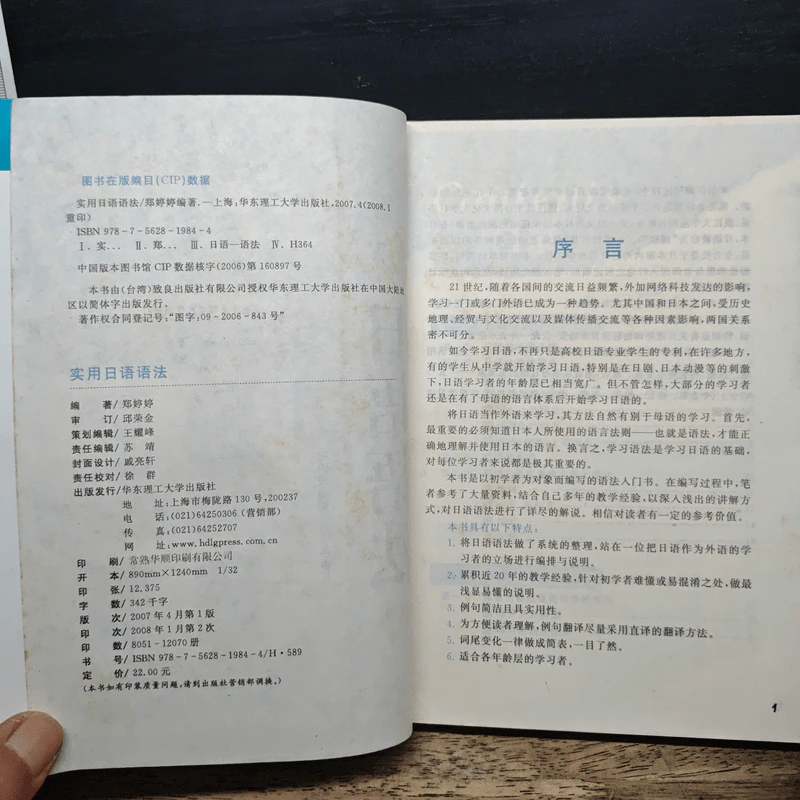 图书在版编目(CIP)数据
实用日语语法/郑婷婷编著.—上海:华东理工大学出版社,2007.4(2008.1
重印)
ISBN 978-7-5628-1984-4
Ⅰ.实... Ⅱ.郑... Ⅲ.日语—语法 Ⅳ.H364
中国版本图书馆CIP数据核字(2006)第160897号
本书由(台湾)致良出版社有限公司授权华东理工大学出版社在中国大陆地
区以简体字出版发行。
著作权合同登记号:“图字:09-2006-843号”
实用日语语法
编 著/郑婷婷
审 订/邱荣金
策划编辑/王耀峰
责任编辑/苏 靖
封面设计/戚亮轩
责任校对/徐 群
出版发行/华东理工大学出版社
地 址:上海市梅陇路130号,200237
电 话:(021)64250306(营销部)
传 真:(021)64252707
网 址:www.hdlgpress.com.cn
印 刷/常熟华顺印刷有限公司
开 本/890mm×1240mm 1/32
印 张/12.375
字 数/342千字
版 次/2007年4月第1版
印 次/2008年1月第2次
印 数/8051-12070册
书 号/ISBN 978-7-5628-1984-4/H·589
定 价/22.00元
(本书如有印装质量问题,请到出版社营销部调换。)
序 言
21世纪,随着各国间的交流日益频繁,外加网络科技发达的影响,
学习一门或多门外语已成为一种趋势。尤其中国和日本之间,受历史
地理、经贸与文化交流以及媒体传播交流等各种因素影响,两国关系
密不可分。
如今学习日语,不再只是高校日语专业学生的专利,在许多地方,
有的学生从中学就开始学习日语,特别是在日剧、日本动漫等的刺激
下,日语学习者的年龄层已相当宽广。但不管怎样,大部分的学习者
还是在有了母语的语言体系后开始学习日语的。
将日语当作外语来学习,其方法自然有别于母语的学习。首先,
最重要的必须知道日本人所使用的语言法则——也就是语法,才能正
确地理解并使用日本的语言。换言之,学习语法是学习日语的基础,
对每位学习者来说都是极其重要的。
本书是以初学者为对象而编写的语法入门书。在编写过程中,笔
者参考了大量资料,结合自己多年的教学经验,以深入浅出的讲解方
式,对日语语法进行了详尽的解说。相信对读者有一定的参考价值。
本书具有以下特点:
1. 将日语语法做了系统的整理,站在一位把日语作为外语的学
习者的立场进行编排与说明。
2. 累积近20年的教学经验,针对初学者难懂或易混淆之处,做最
浅显易懂的说明。
3. 例句简洁且具实用性。
4. 为方便读者理解,例句翻译尽量采用直译的翻译方法。
5. 词尾变化一律做成简表,一目了然。
6. 适合各年龄层的学习者。
1